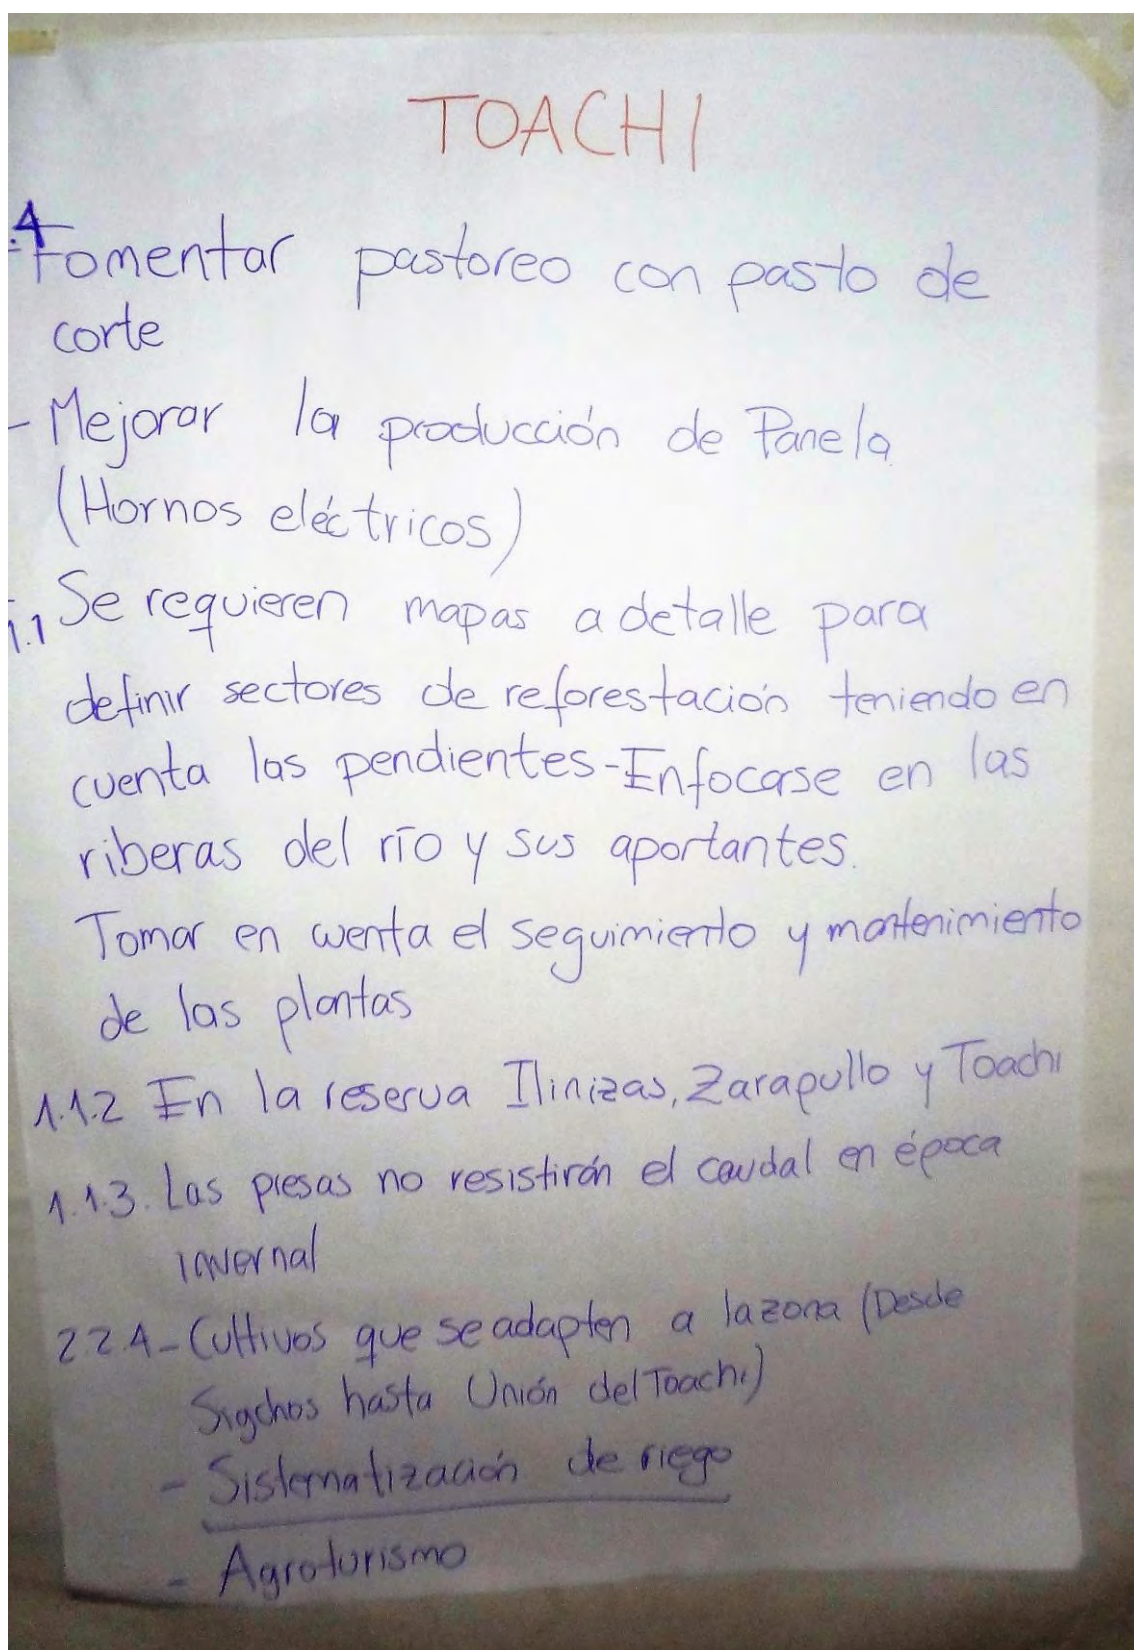 TOACHI
.4
-Fomentar pastoreo con pasto de
corte
- Mejorar la producción de Panela
(Hornos eléctricos)
1.1 Se requieren mapas a detalle para
definir sectores de reforestación teniendo en
cuenta las pendientes-Enfocase en las
riberas del río y sus aportantes.
Tomar en cuenta el seguimiento y mantenimiento
de las plantas
1.1.2 En la reserva Ilinizas, Zarapullo y Toachi
1.1.3. Las presas no resistirán el caudal en época
invernal
2.2.4- Cultivos que se adapten a la zona (Desde
Sigchos hasta Unión del Toachi)
- Sistematización de riego
- Agroturismo